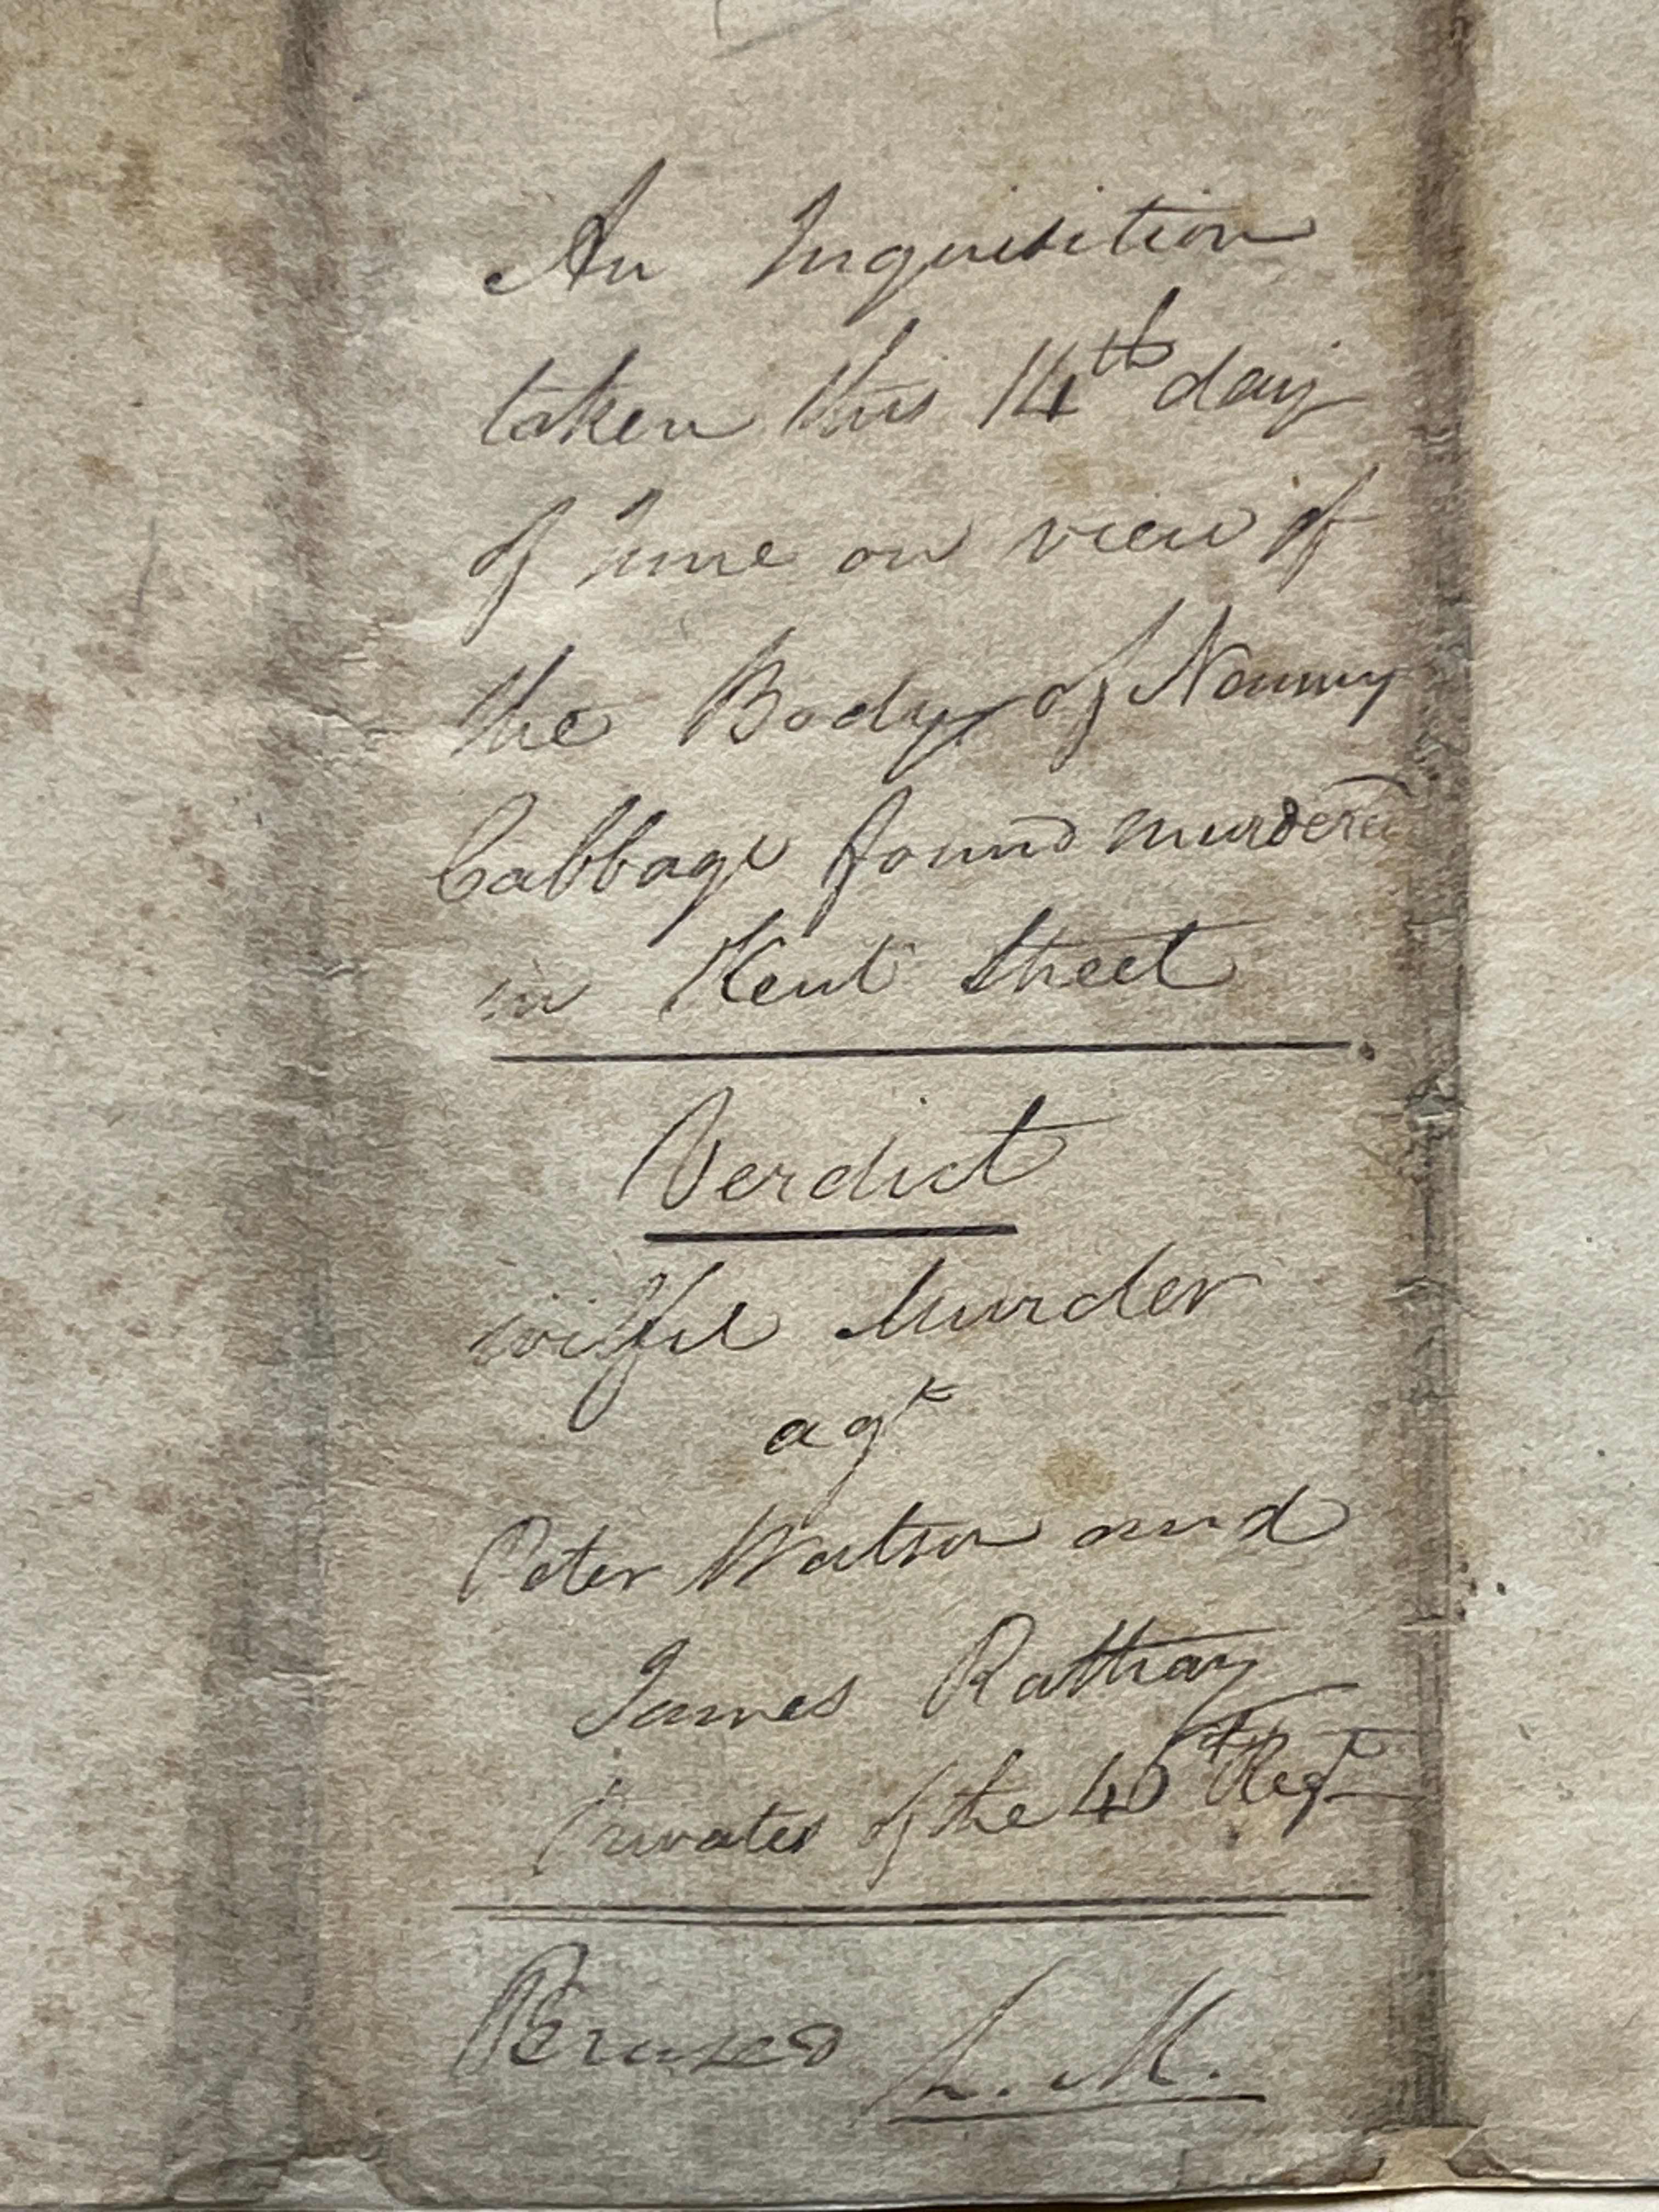 An Inquisition
taken this 14th day
of June on view of
the Body of Nanny
Cabbage found murdered
in Kent Street
Verdict
wilful Murder
agt
Peter Watson and
James Rattray
Privates of the 46th Regt
Perused L. M.